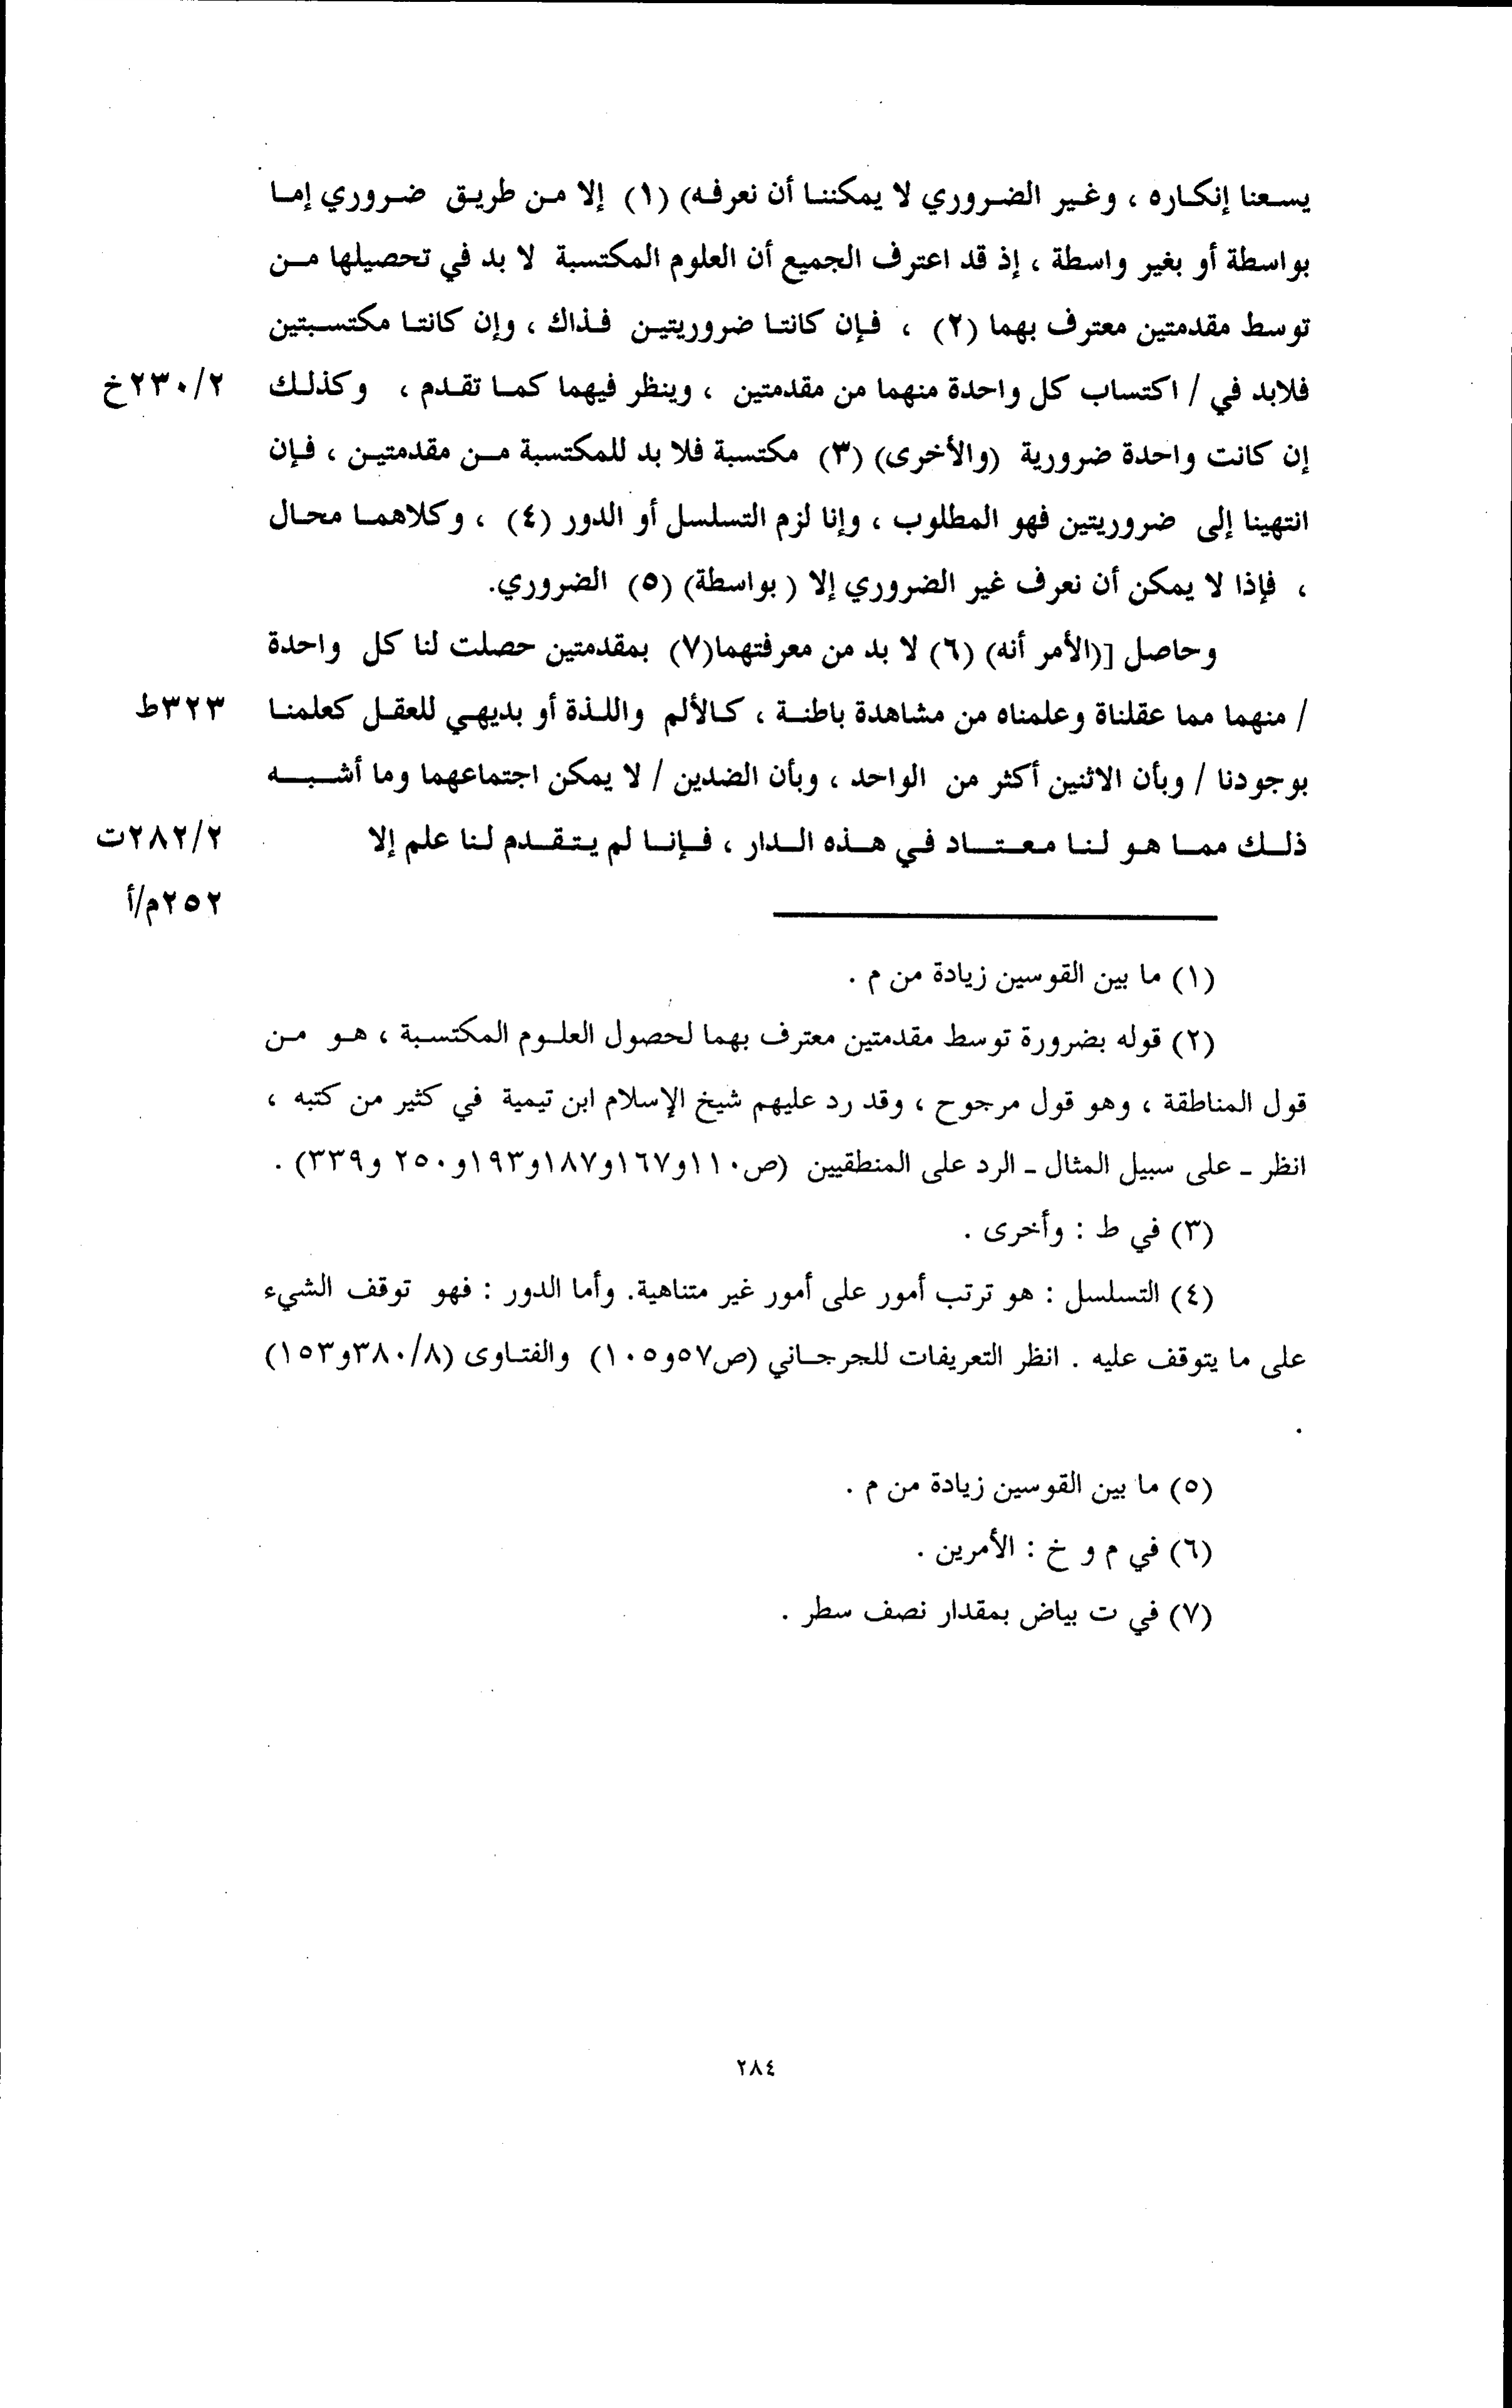 يسعنا إنكاره ، وغير الضروري لا يمكننا أن نعرفه) (١) إلا من طريق ضروري إما
بواسطة أو بغير واسطة ، إذ قد اعترف الجميع أن العلوم المكتسبة لا بد في تحصيلها من
توسط مقدمتين معترف بهما (٢) ، فإن كانتا ضروريتين فذاك ، وإن كانتا مكتسبتين
فلابد في / اكتساب كل واحدة منهما من مقدمتين ، وينظر فيهما كما تقدم ، وكذلك ٢٣٠/٢خ
إن كانت واحدة ضرورية (والأخرى) (٣) مكتسبة فلا بد للمكتسبة من مقدمتين ، فإن
انتهينا إلى ضروريتين فهو المطلوب ، وإنا لزم التسلسل أو الدور (٤) ، وكلاهما محال
، فإذا لا يمكن أن نعرف غير الضروري إلا ( بواسطة) (٥) الضروري.
وحاصل [(الأمر أنه) (٦) لا بد من معرفتهما(٧) بمقدمتين حصلت لنا كل واحدة
/ منهما مما عقلناة وعلمناه من مشاهدة باطنة ، كالألم واللذة أو بديهي للعقل كعلمنا ٣٢٣ط
بوجودنا / وبأن الاثنين أكثر من الواحد ، وبأن الضدين / لا يمكن اجتماعهما وما أشبه
ذلك مما هو لنا معتاد في هذه الدار ، فإنا لم يتقدم لنا علم إلا ٢٨٢/٢ت
٢٥٢م/أ
(١) ما بين القوسين زيادة من م .
(٢) قوله بضرورة توسط مقدمتين معترف بهما لحصول العلوم المكتسبة ، هو من
قول المناطقة ، وهو قول مرجوح ، وقد رد عليهم شيخ الإسلام ابن تيمية في كثير من كتبه ،
انظر ـ على سبيل المثال ـ الرد على المنطقيين (ص١١٠و١٦٧و١٨٧و١٩٣و٢٥٠ و٣٣٩) .
(٣) في ط : وأخرى .
(٤) التسلسل : هو ترتب أمور على أمور غير متناهية. وأما الدور : فهو توقف الشيء
على ما يتوقف عليه . انظر التعريفات للجرجاني (ص٥٧و١٠٥) والفتاوى (٣٨٠/٨و١٥٣)
.
(٥) ما بين القوسين زيادة من م .
(٦) في م و خ : الأمرين .
(٧) في ت بياض بمقدار نصف سطر .
٢٨٤